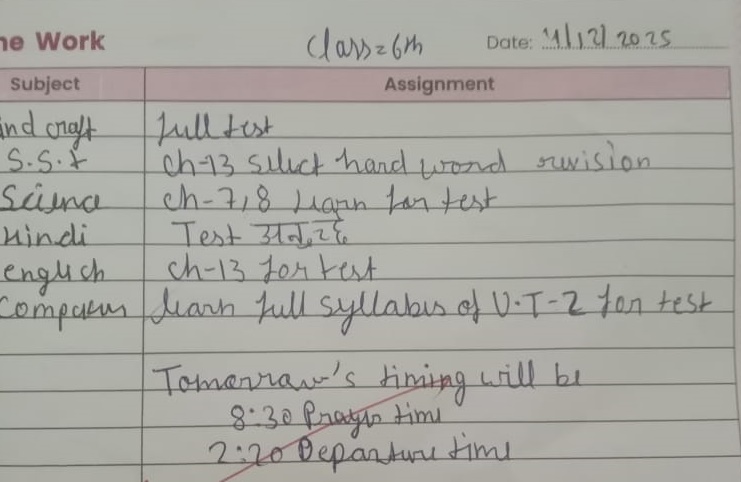 ne Work Class=6th Date: 4/12/2025
Subject Assignment
ind craft full test
S.S.t ch-13 select hard word revision
Science ch-7,8 learn for test
Hindi Test
english ch-13 for test
Computer learn full syllabus of U.T-2 for test
Tomorrow's timing will be
8:30 Prayer time
2:20 Departure time